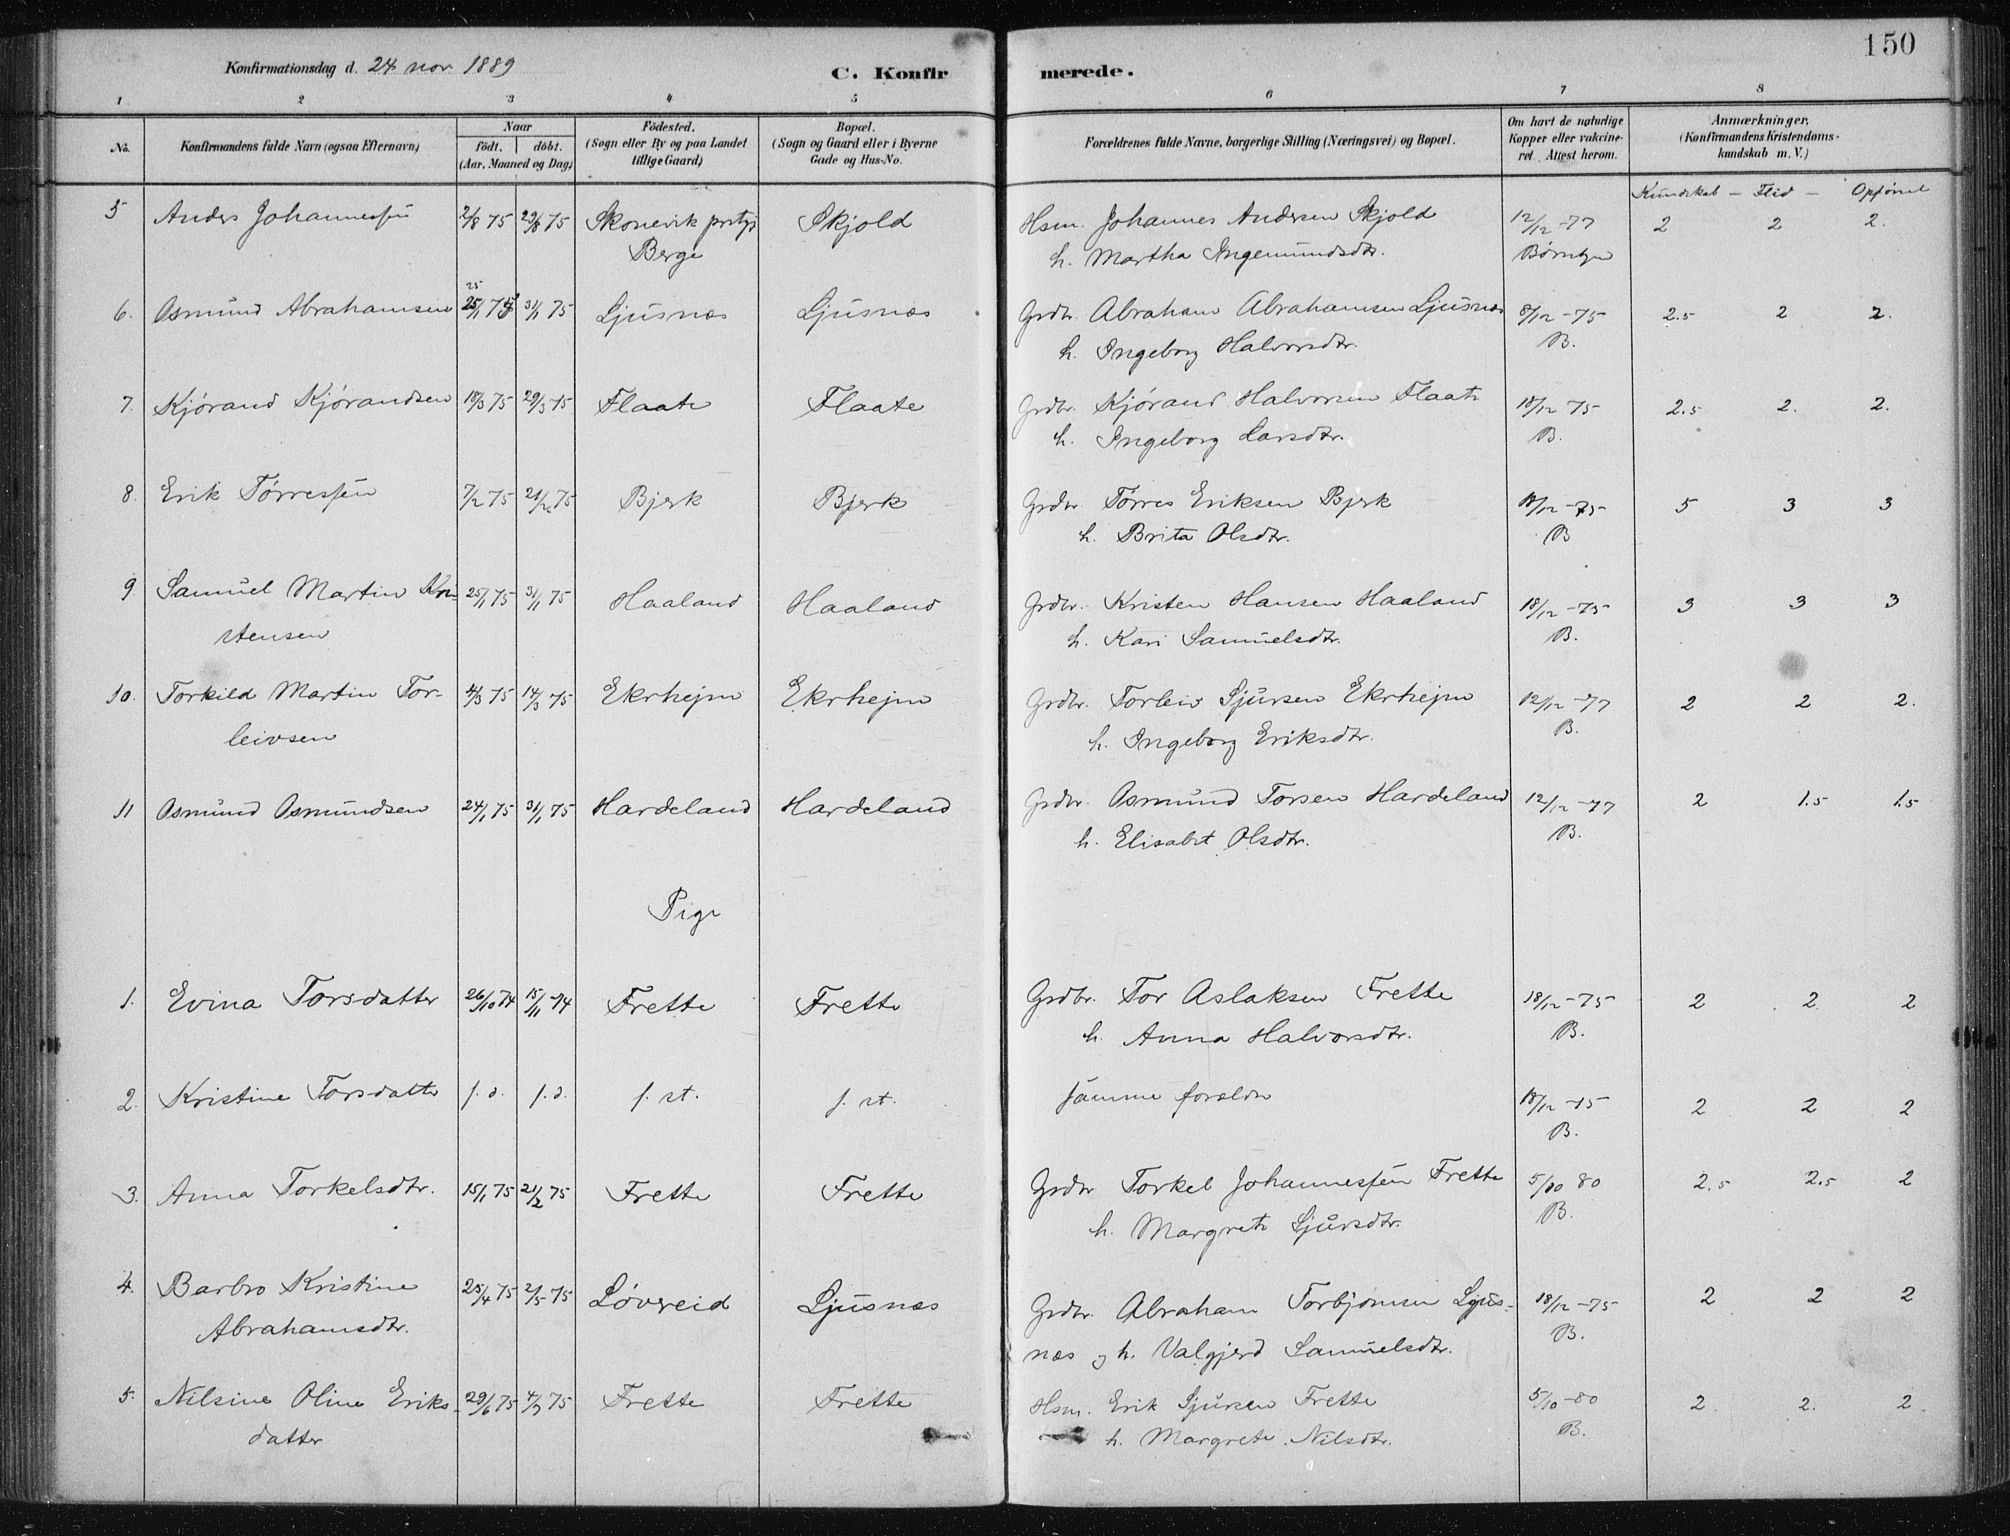 150
Konfirmationsdag d. 24 nov. 1889
C. Konfirmerede.
1 2 3 4 5 6 7 8
No. Konfirmandens fulde Navn (ogsaa Efternavn) Naar født. døbt. (Aar, Maaned og Dag) Fødested. (Sogn eller By og paa Landet tillige Gaard) Bopæl. (Sogn og Gaard eller i Byerne Gade og Hus-No. Forældrenes fulde Navne, borgerlige Stilling (Næringsvei) og Bopæl. Om havt de naturlige Kopper eller vakcineret. Attest herom. Anmærkninger. (Konfirmandens Kristendomskundskab m. V.)
Kundskab – Flid – Opførsel
5 Anders Johannessen 2/8 75 29/8 75 Skonevik prstgj Skjold Hsm. Johannes Andersen Skjold 12/12 -77 2 2 2.
Berge h. Martha Ingemundsdtr.
6. Osmund Abrahamsen 25/1 75 31/1 75 Ljusnæs Ljusnæs Grdbr. Abraham Abrahamsen Ljusnæs 8/12 -75 2.5 2 2.
h. Ingeborg Halvorsdtr. B.
7. Kjørand Kjørandsen 18/3 75 29/3 75 Flaate Flaate Grdbr. Kjørand Halvorsen Flaate 18/12 75 2.5 2. 2.
h. Ingeborg Larsdtr. B.
8. Erik Tørressen 7/2 75 21/2 75 Bjerk Bjerk Grdbr Tørres Eriksen Bjerk 18/12 -75 5 3 3
h. Brita Olsdtr. B
9 Samuel Martin Kri- 25/1 75 31/1 75 Haaland Haaland Grdbr. Kristen Hansen Haaland 18/12 -75 3 3 3
stensen h. Kari Samuelsdtr. B.
10. Torkild Martin Tor- 4/3 75 14/3 75 Ekrhejm Ekrhejm Grdbr. Torleiv Sjursen Ekrhejm 12/12 -77 2 2 2.
leivsen h. Ingeborg Eriksdtr. B.
11 Osmund Osmundsen 24/1 75 31/1 75 Hardeland Hardeland Grdbr. Osmund Torsen Hardeland 12/12 -77 2 1.5 1.5
h. Elisabet Olsdtr. B.
Pige
1. Evina Torsdatter 26/10 74 15/11 74 Frette Frette Grdbr. Tor Aslaksen Frette 18/12 -75 2 2 2
h. Anna Halvorsdtr. B.
2. Kristine Torsdatter s. d. s. d. s. st. s. st. samme forældre 18/12 -75 2 2 2
B.
3. Anna Torkelsdtr. 15/1 75 21/2 75 Frette Frette Grdbr Torkel Johannessen Frette 5/10 80 2.5 2.5 2
h. Margrete Sjursdtr. B.
4. Barbro Kristine 25/4 75 2/5 75 Løvereid Ljusnæs Grdbr. Abraham Torbjørnsen Ljus- 18/12 -75 2 2 2
Abrahamsdtr. næs og h. Valgjerd Samuelsdtr. B.
5. Nilsine Oline Eriks- 29/6 75 4/7 75 Frette Frette Hsm. Erik Sjursen Frette 5/10 -80 2. 2. 2
datter h. Margrete Nilsdtr. B.